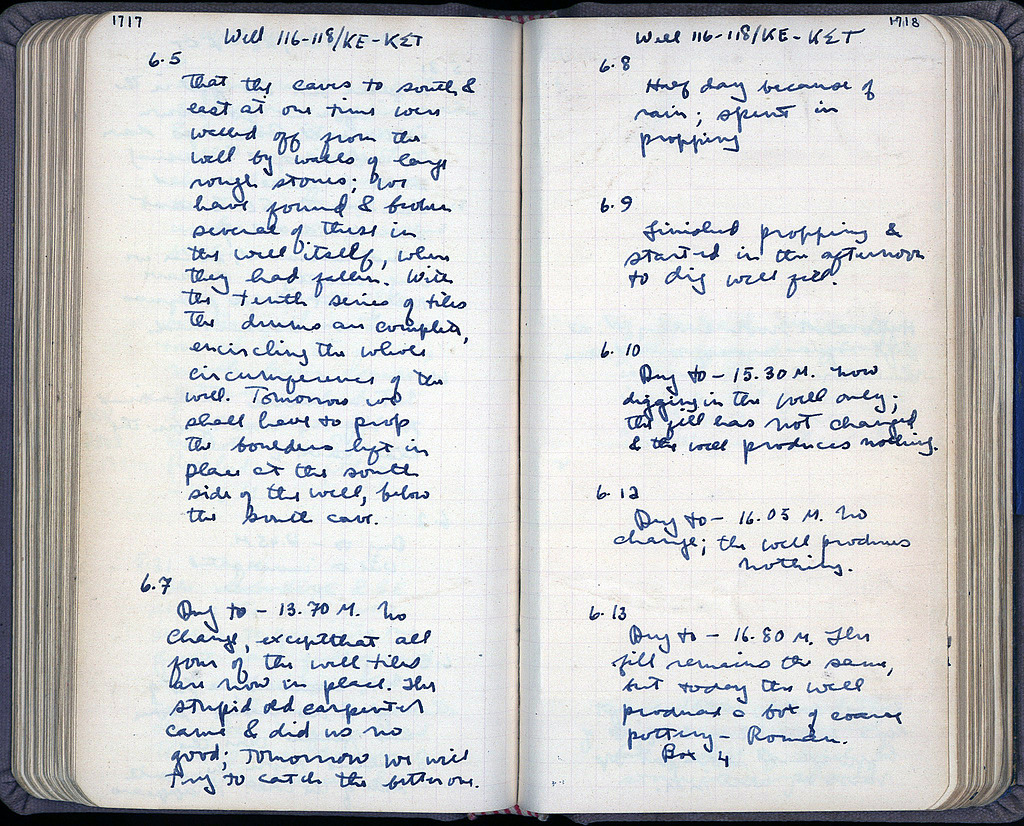 1717
Well 116-118/KE-KΣT
6.5
that the caves to south &
east at one time were
walled off from the
well by walls of large
rough stones; we
have found & broken
several of these in
the well itself, where
they had fallen. With
the tenth series of tiles
the drums are complete,
encircling the whole
circumference of the
well. Tomorrow we
shall have to prop
the boulders left in
place at the south
side of the well, below
the south cave.
6.7
Dug to - 13.70 M. No
change, except that all
four of the well tiles
are now in place. The
stupid old carpenter
came & did us no
good; tomorrow we will
try to catch the better one.
1718
Well 116-118/KE-KΣT
6.8
Half day because of
rain; spent in
propping
6.9
Finished propping &
started in the afternoon
to dig well fill.
6.10
Dug to - 15.30 M. Now
digging in the well only;
the fill has not changed
& the well produces nothing.
6.12
Dug to - 16.05 M. No
change; the well produces
nothing.
6.13
Dug to - 16.80 M. The
fill remains the same,
but today the well
produced a box of coarse
pottery - Roman.
Box 4